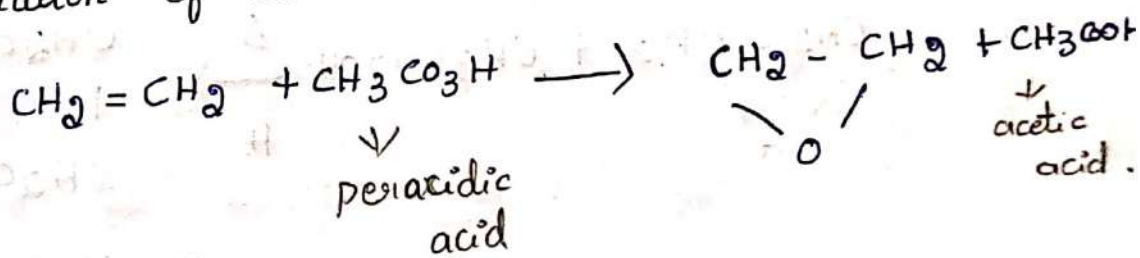 of
CH2 = CH2 + CH3 CO3 H ⟶ CH2 - CH2 + CH3 COOH
O
↓ peracidic acid
↓ acetic acid .